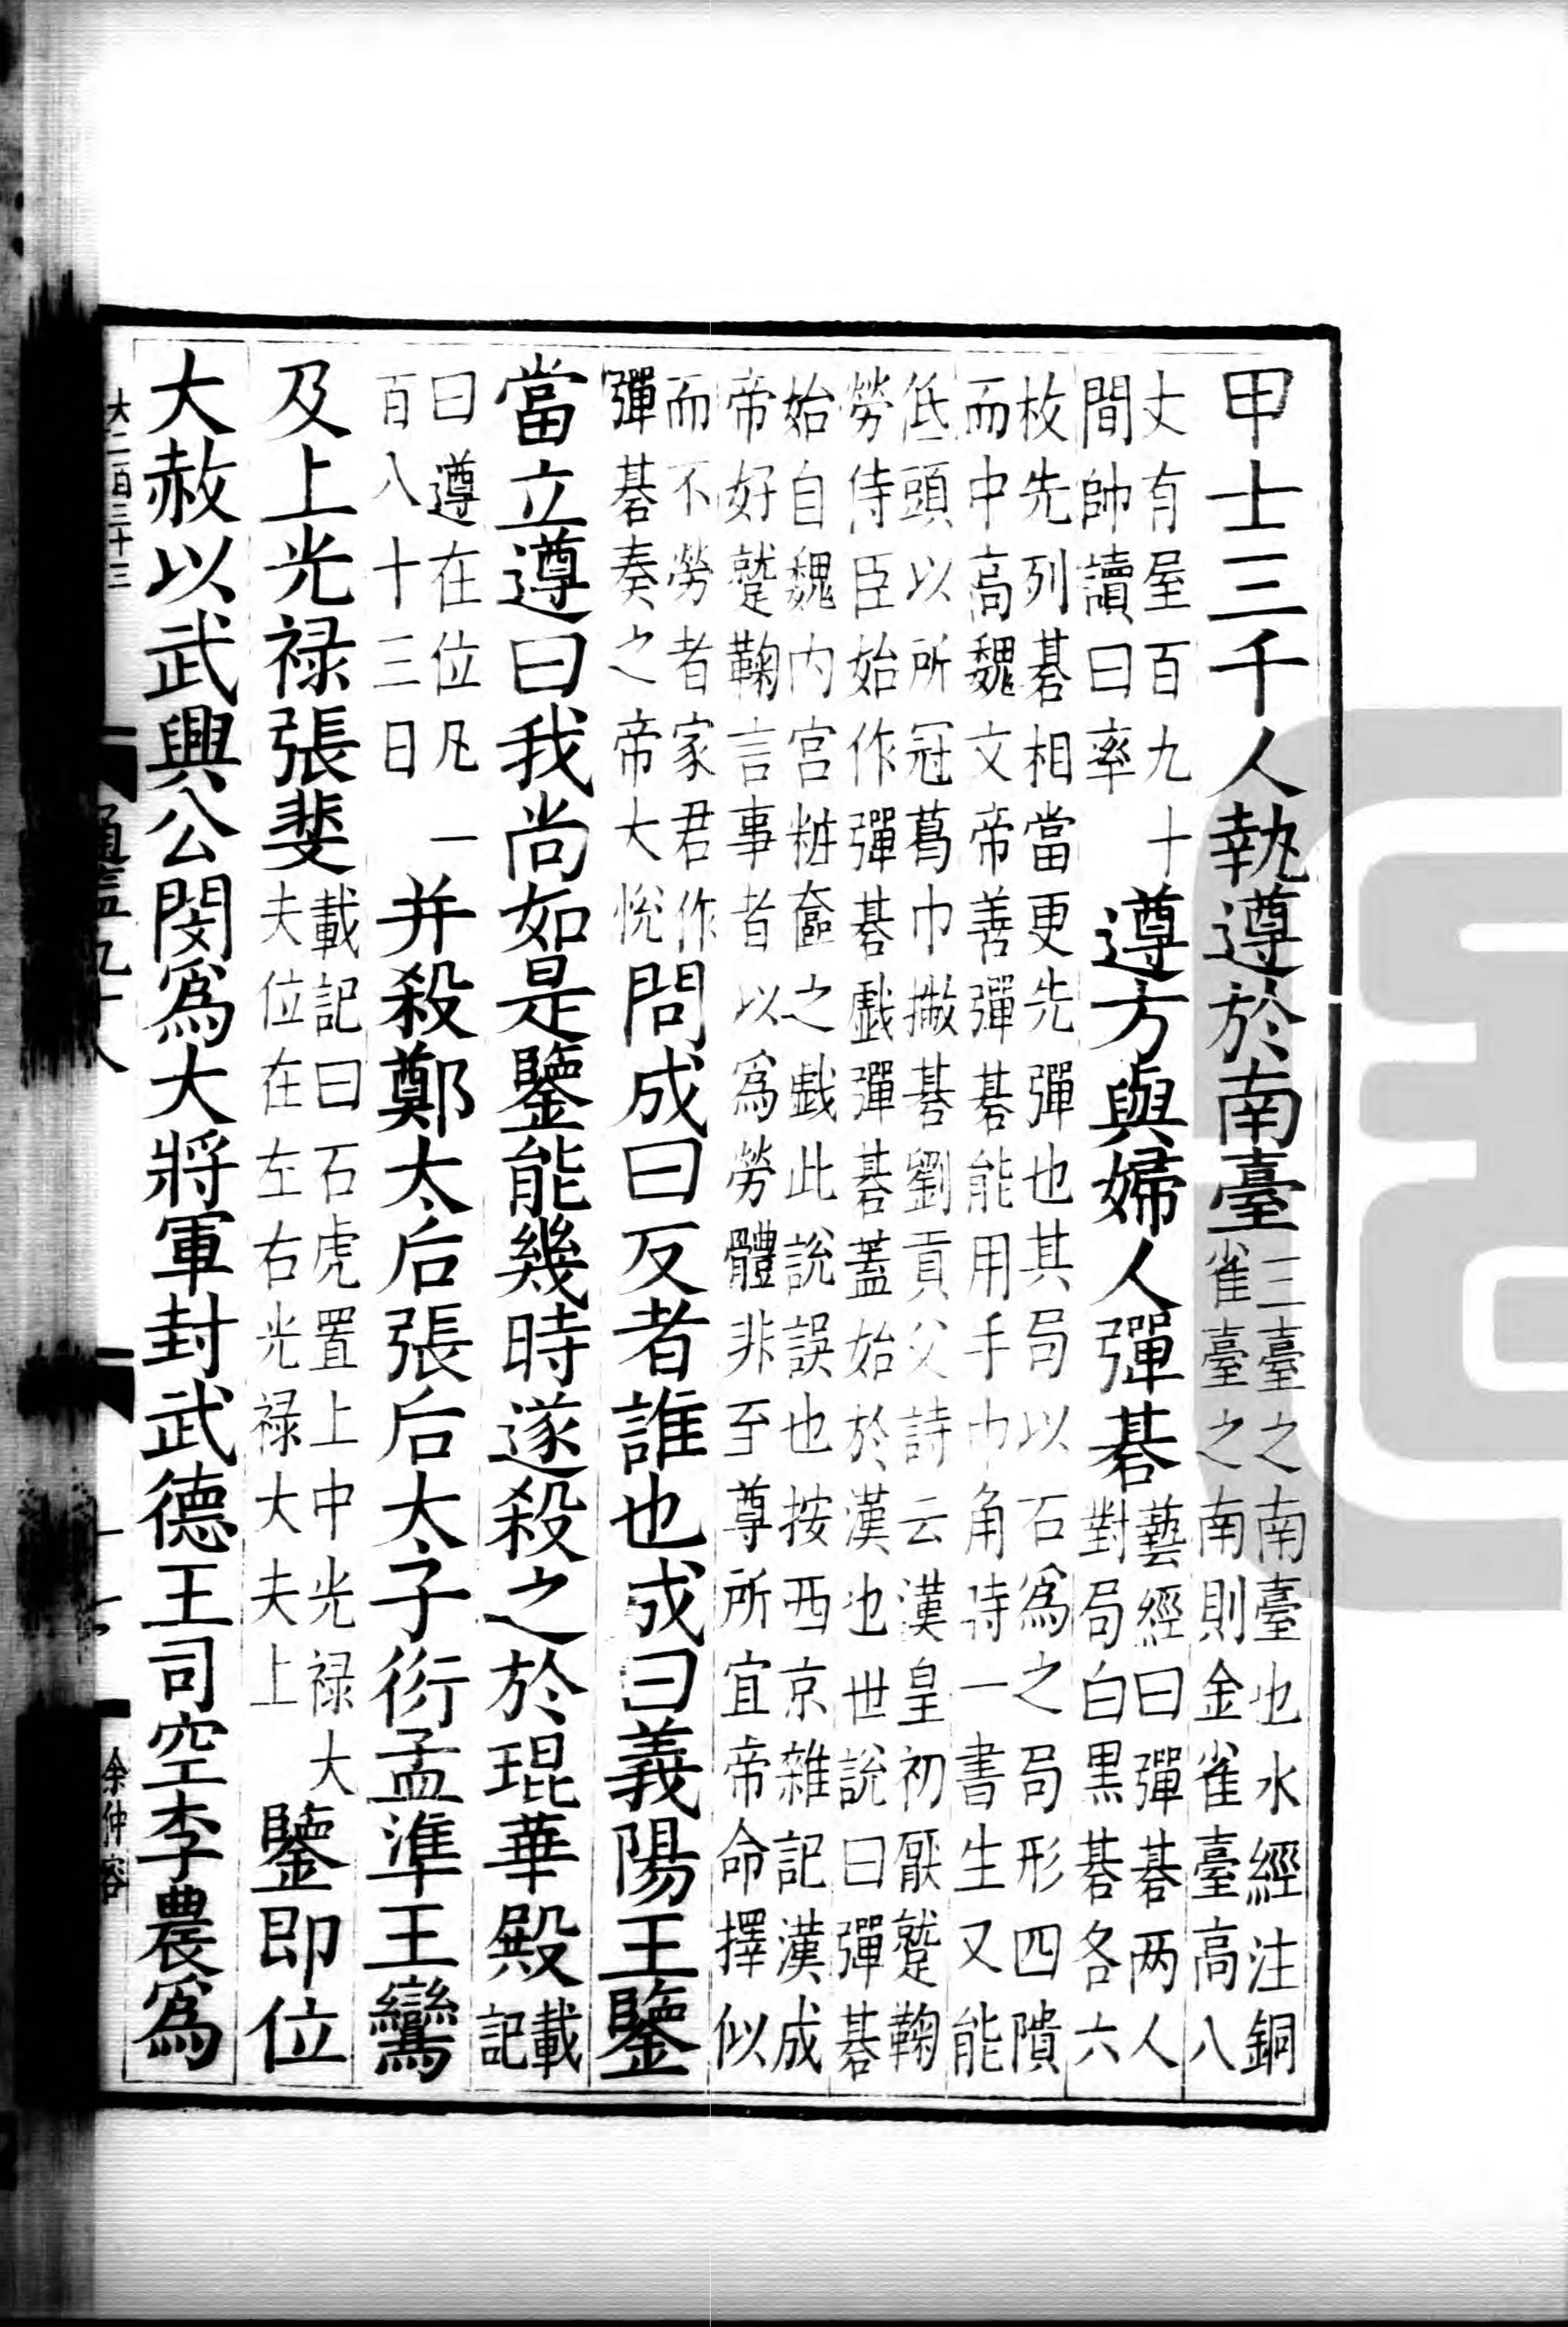 甲士三千人執遵於南臺三臺之南臺也水經注銅雀臺之南則金雀臺高八
丈有屋百九十間帥讀曰率遵方與婦人彈碁藝經曰彈碁两人對局白黒碁各六
枚先列碁相當更先彈也其局以石爲之局形四隤而中髙魏文帝善彈碁能用手巾角時一書生又能
低頭以所冠葛巾撇碁劉貢父詩云漢皇初厭蹵鞠勞侍臣始作彈碁戯彈碁蓋始於漢也世說曰彈碁
始自魏内宫粧奩之戯此說誤也按西京雜記漢成帝好蹵鞠言事者以爲勞體非至尊所宜帝命擇似
而不勞者家君作彈碁奏之帝大悅問成曰反者誰也成曰義陽王鑒
當立遵曰我尚如是鑒能幾時遂殺之於琨華殿載記
曰遵在位凡一百八十三日并殺鄭太后張后太子衍孟準王鸞
及上光禄張斐載記曰石虎置上中光禄大夫位在左右光禄大夫上鑒即位
大赦以武興公閔爲大將軍封武德王司空李農爲
大二百三十三
通鑑九十八
余仲容